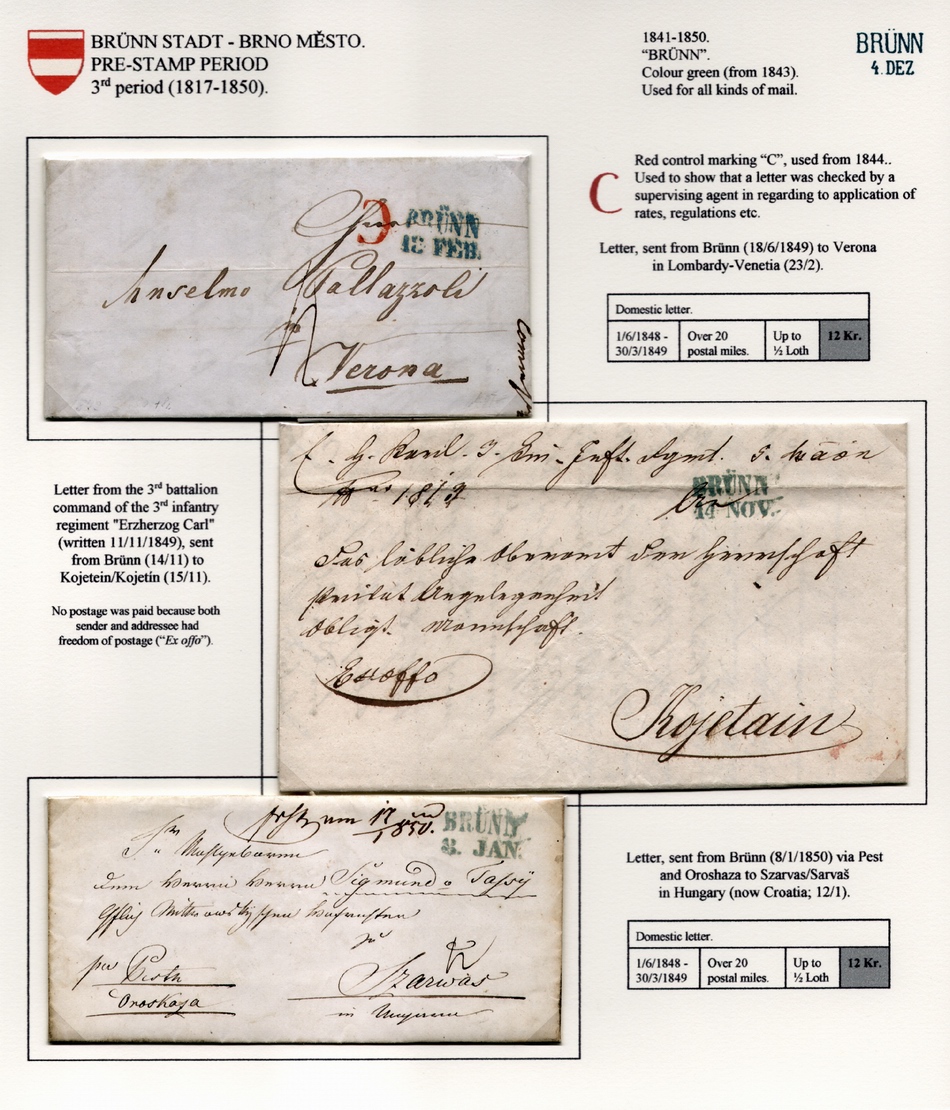 BRÜNN STADT - BRNO MĚSTO.
PRE-STAMP PERIOD
3rd period (1817-1850).
1841-1850.
“BRÜNN”.
Colour green (from 1843).
Used for all kinds of mail.
BRÜNN
4. DEZ
C
Red control marking “C”, used from 1844..
Used to show that a letter was checked by a
supervising agent in regarding to application of
rates, regulations etc.
Letter, sent from Brünn (18/6/1849) to Verona
in Lombardy-Venetia (23/2).
Domestic letter.
1/6/1848 - 30/3/1849 Over 20 postal miles. Up to ½ Loth 12 Kr.
C
BRÜNN
18 FEB.
Anselmo Pallazzoli
Verona
Letter from the 3rd battalion
command of the 3rd infantry
regiment "Erzherzog Carl"
(written 11/11/1849), sent
from Brünn (14/11) to
Kojetein/Kojetín (15/11).
No postage was paid because both
sender and addressee had
freedom of postage (“Ex offo”).
BRÜNN
14 NOV.
Das löbliche Oberamt der Herrschaft
Exoffo
Kojetain
BRÜNN
8. JAN.
1850.
Sigmund
zu
per Pesth
Oroskaza
Szarwas
in Ungarn
Letter, sent from Brünn (8/1/1850) via Pest
and Oroshaza to Szarvas/Sarvaš
in Hungary (now Croatia; 12/1).
Domestic letter.
1/6/1848 - 30/3/1849 Over 20 postal miles. Up to ½ Loth 12 Kr.